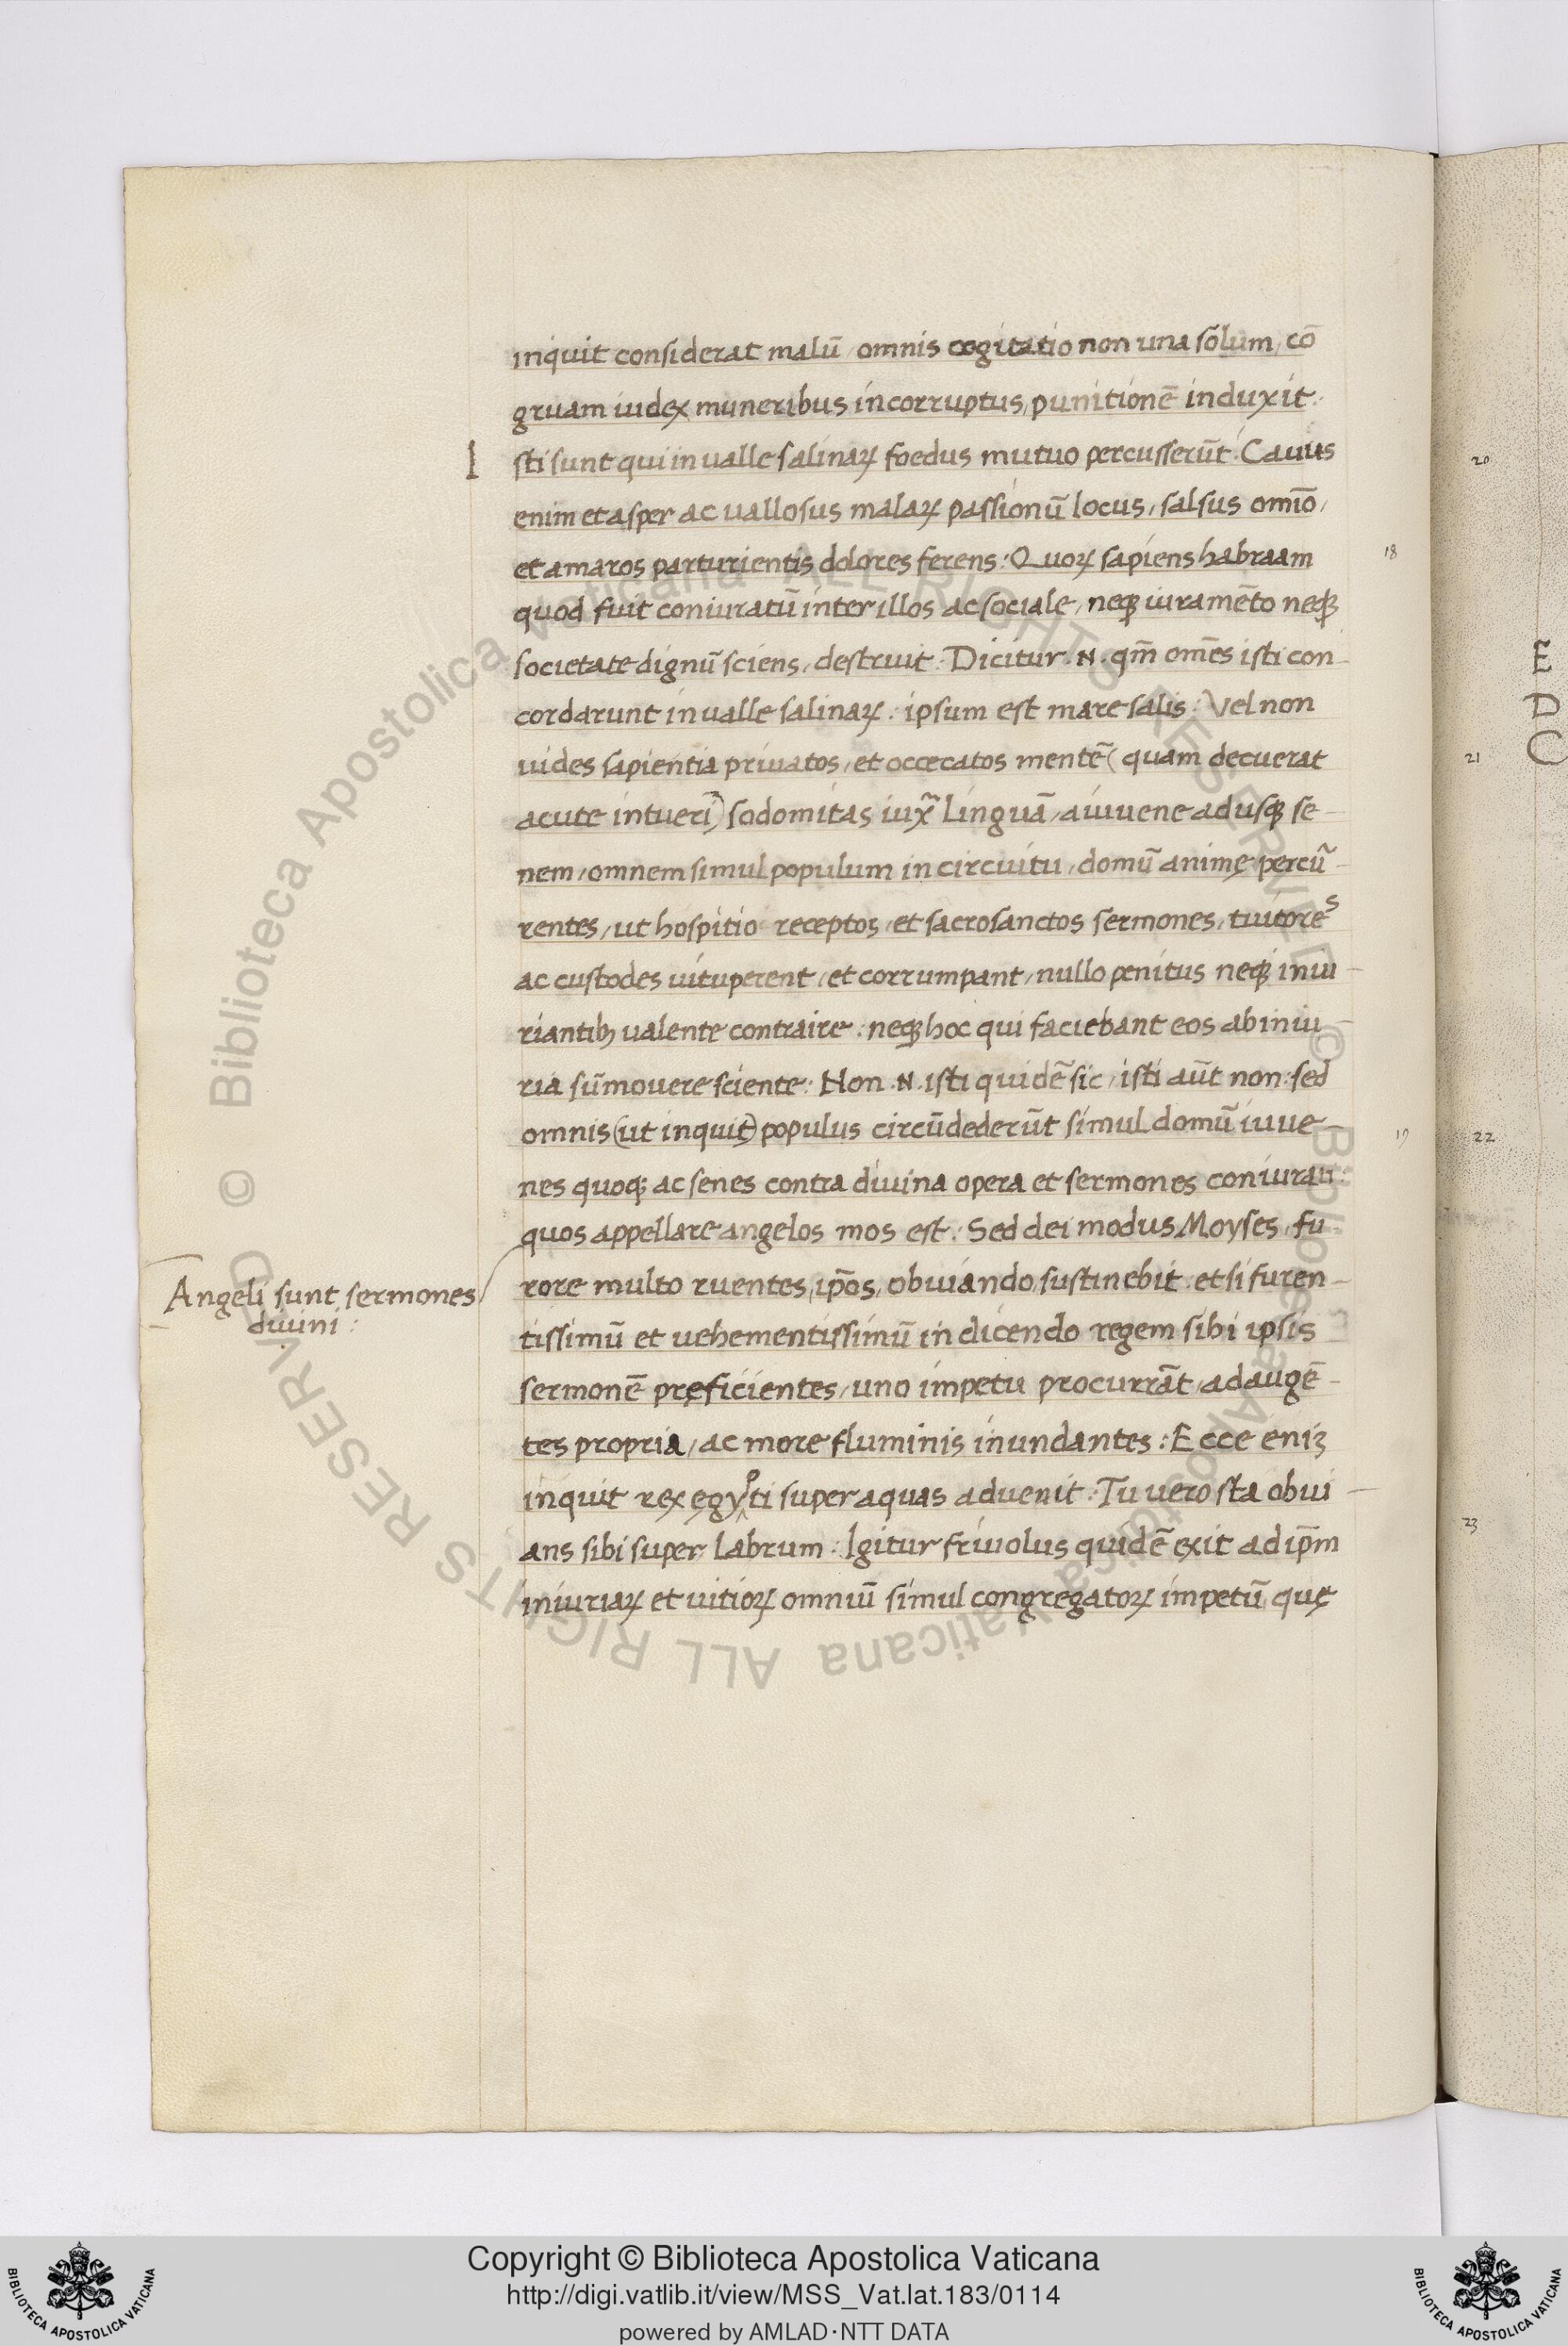 inquit considerat malū, omnis cogitatio non una sōlum, cō
gruam iudex muneribus incorruptus, punitionē induxit.
I sti sunt qui in ualle salinaꝝ foedus mutuo percusserūt. Cauus
enim et asper ac uallosus malaꝝ passionū locus, salsus omīo,
et amaros parturientis dolores ferens: Quoꝝ sapiens habraam
18
quod fuit coniuratū inter illos ac sociale, neqꝫ iuramēto neqꝫ
societate dignū sciens, destruit: Dicitur .N. qm̄ om̄es isti con-
cordarunt in ualle salinaꝝ: ipsum est mare salis: Vel non
uides sapientia priuatos, et occecatos mentē (quam decuerat
acute intueri) sodomitas iux̄ Linguā, a iuuene adusqꝫ se-
nem, omnem simul populum in circuitu, domū animę percū-
rentes, ut hospitio receptos, et sacrosanctos sermones, tutores
ac custodes uituperent, et corrumpant, nullo penitus neqꝫ iniu-
riantibꝫ ualente contraire: neqꝫ hoc qui faciebant eos ab iniu-
ria sūmouere sciente: Non .N. isti quidē sic, isti aūt non: sed
omnis (ut inquit) populus circūdederūt simul domū iuue-
19
nes quoqꝫ ac senes contra diuina opera et sermones coniurati:
quos appellare angelos mos est: Sed dei modus Moyses, fu-
Angeli sunt sermones
diuini:
rore multo ruentes, ip̄os, obuiando, sustinebit: et si furen-
tissimū et uehementissimū in dicendo regem sibi ipsis
sermonē pręficientes, uno impetu procurrāt, adaugē-
tes propria, ac more fluminis inundantes: Ecce eniꝫ
inquit rex ęgypti super aquas aduenit: Tu uero sta obui-
ans sibi super Labrum: Igitur friuolus quidē exit ad ip̄m
iniuriaꝝ et uitioꝝ omniū simul congregatoꝝ impetū, quę
20
E
D
C
21
22
23
© Biblioteca Apostolica Vaticana ALL RIGHTS RESERVED
Copyright © Biblioteca Apostolica Vaticana
http://digi.vatlib.it/view/MSS_Vat.lat.183/0114
powered by AMLAD·NTT DATA
BIBLIOTECA APOSTOLICA VATICANA
BIBLIOTECA APOSTOLICA VATICANA